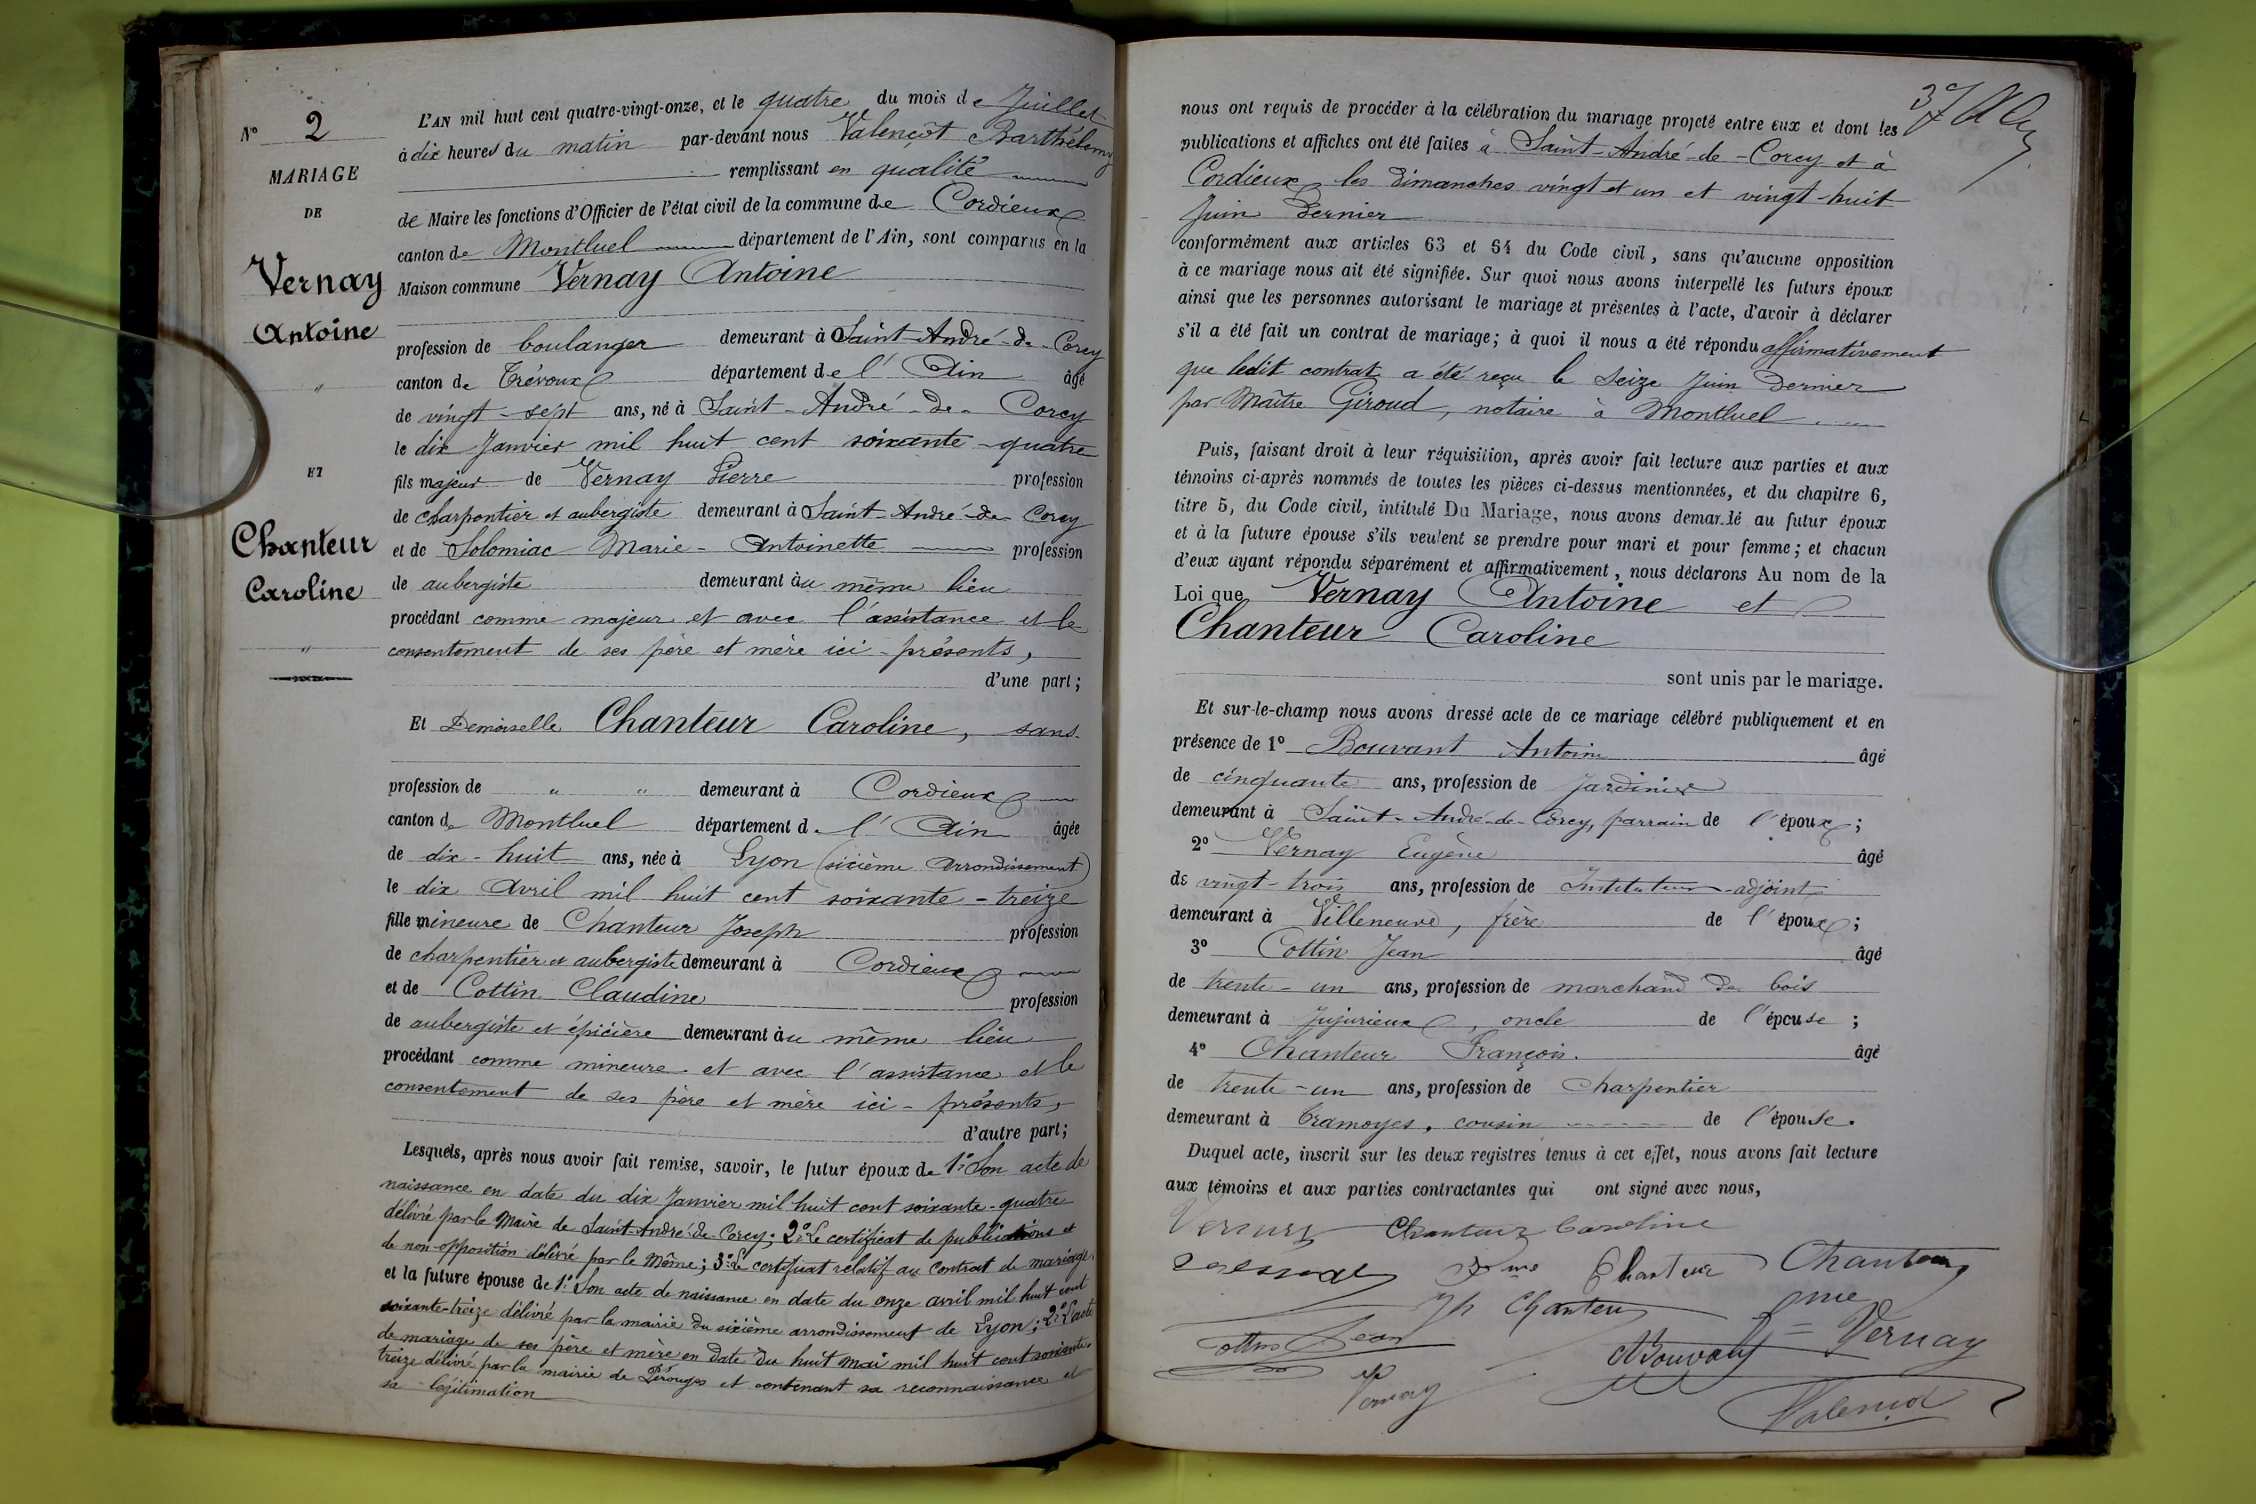 N° 2
MARIAGE
DE
Vernay
Antoine
"
ET
Chanteur
Caroline
"
L'AN mil huit cent quatre-vingt-onze, et le quatre du mois de Juillet
à dix heures du matin par-devant nous Valençot Barthélemy
remplissant en qualité
de Maire les fonctions d'Officier de l'état civil de la commune de Cordieux
canton de Montluel département de l'Ain, sont comparus en la
Maison commune Vernay Antoine
profession de boulanger demeurant à Saint-André-de-Corcy
canton de Trévoux département de l'Ain âgé
de vingt-sept ans, né à Saint-André-de-Corcy
le dix Janvier mil huit cent soixante-quatre
fils majeur de Vernay Pierre profession
de charpentier et aubergiste demeurant à Saint-André-de-Corcy
et de Solomiac Marie-Antoinette profession
de aubergiste demeurant au même lieu
procédant comme majeur et avec l'assistance et le
consentement de ses père et mère ici-présents,
d'une part;
Et Demoiselle Chanteur Caroline, sans
profession de " " demeurant à Cordieux
canton de Montluel département de l'Ain âgée
de dix-huit ans, née à Lyon (sixième arrondissement)
le dix Avril mil huit cent soixante-treize
fille mineure de Chanteur Joseph profession
de charpentier et aubergiste demeurant à Cordieux
et de Cottin Claudine profession
de aubergiste et épicière demeurant au même lieu
procédant comme mineure et avec l'assistance et le
consentement de ses père et mère ici-présents,
d'autre part;
Lesquels, après nous avoir fait remise, savoir, le futur époux de 1° Son acte de
naissance en date du dix Janvier mil huit cent soixante-quatre
délivré par le Maire de Saint-André-de-Corcy; 2° Le certificat de publications et
de non-opposition délivré par le Même; 3° Le certificat relatif au contrat de mariage.
et la future épouse de 1° Son acte de naissance en date du onze avril mil huit cent
soixante-treize délivré par la mairie du sixième arrondissement de Lyon; 2° L'acte
de mariage de ses père et mère en date du huit Mai mil huit cent soixante-
treize délivré par la mairie de Pérouges et contenant sa reconnaissance et
sa légitimation
37
nous ont requis de procéder à la célébration du mariage projeté entre eux et dont les
publications et affiches ont été faites à Saint-André-de-Corcy et à
Cordieux les Dimanches vingt et un et vingt-huit
Juin Dernier
conformément aux articles 63 et 64 du Code civil, sans qu'aucune opposition
à ce mariage nous ait été signifiée. Sur quoi nous avons interpellé les futurs époux
ainsi que les personnes autorisant le mariage et présentes à l'acte, d'avoir à déclarer
s'il a été fait un contrat de mariage; à quoi il nous a été répondu affirmativement
que ledit contrat a été reçu le Seize Juin Dernier
par Maître Giroud, notaire à Montluel
Puis, faisant droit à leur réquisition, après avoir fait lecture aux parties et aux
témoins ci-après nommés de toutes les pièces ci-dessus mentionnées, et du chapitre 6,
titre 5, du Code civil, intitulé Du Mariage, nous avons demandé au futur époux
et à la future épouse s'ils veulent se prendre pour mari et pour femme; et chacun
d'eux ayant répondu séparément et affirmativement, nous déclarons Au nom de la
Loi que Vernay Antoine et
Chanteur Caroline
sont unis par le mariage.
Et sur-le-champ nous avons dressé acte de ce mariage célébré publiquement et en
présence de 1° Bouvant Antoine âgé
de cinquante ans, profession de Jardinier
demeurant à Saint-André-de-Corcy, parrain de l'époux;
2° Vernay Eugène âgé
de vingt-trois ans, profession de Instituteur-adjoint
demeurant à Villeneuve, frère de l'époux;
3° Cottin Jean âgé
de trente-un ans, profession de marchand de bois
demeurant à Jujurieux, oncle de l'épouse;
4° Chanteur François. âgé
de trente-un ans, profession de Charpentier
demeurant à Tramoyes, cousin de l'épouse.
Duquel acte, inscrit sur les deux registres tenus à cet effet, nous avons fait lecture
aux témoins et aux parties contractantes qui ont signé avec nous,
Vernay Chanteur Caroline
Fme Chanteur Chanteur
Jh Chanteur
Cottin Jean Fme Vernay
ABouvant
Vernay
Valençot